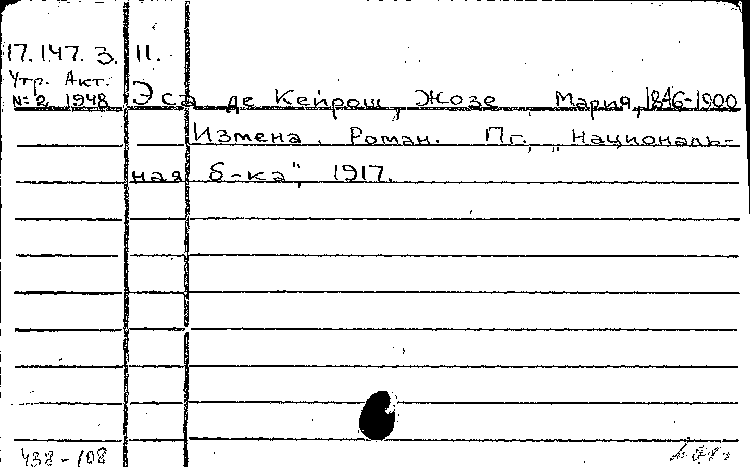 17.147.3.11.
Утр. Акт.
№2 1948 Эса де Кейрош, Жозе Мария, 1846-1900
Измена. Роман. Пг., „Националь-
ная б-ка", 1917.
438-108